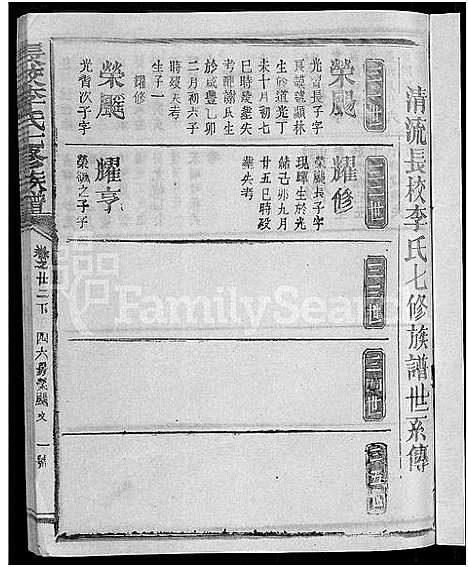 清流長校李氏七修族譜世系傳
三一世
榮颺
光習長子字
辰謨號顯林
生於道光丁
未十月初七
巳時歿葬失
考配謝氏生
於咸豐乙卯
二月初六子
時歿失考
生子一
耀修
榮颺
光習次子字
三二世
耀修
榮颺長子字
現暉生於光
緒己卯九月
廿五巳時歿
葬失考
耀亨
榮颺之子字
三三世
三四世
三五世
長校李氏七修族譜
卷之廿二下
四六房榮颺支
一號
FamilySearch